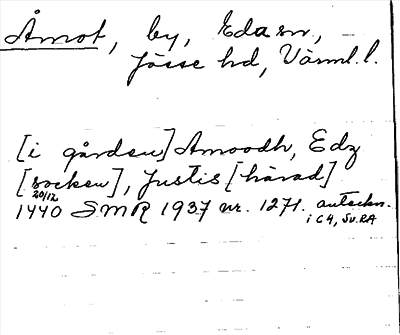 Åmot, by, Eda sn,
Jösse hd, Värml. l.
[i gården] Amoodh, Edz
[socken], Justis [härad]
20/12
1440 SMR 1937 nr. 1271. anteckn.
i C4, Sv.RA